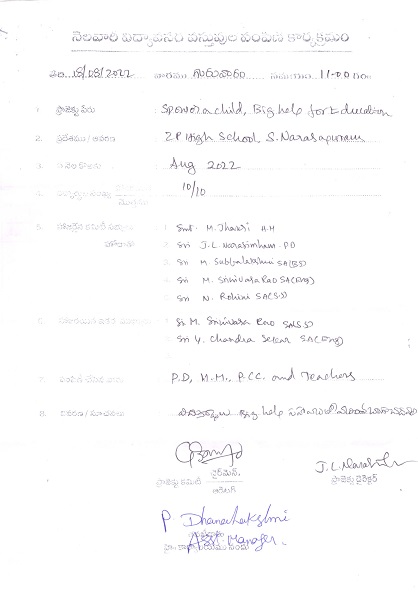 నెలవారీ విద్యా పరం వస్తువుల పంపిణీ కార్యక్రమం
తేది 18/08/2022 వారము గురువారం సమయం 11-00 గం
1. ప్రాజెక్టు పేరు : Sponsor a child, Big help for Education
2. ప్రదేశము / ఆవరణ : ZP High School, S. Narasapuram
3. ఈ నెల కొరకు : Aug 2022
4. 10/10
5. 1 Smt. M. Jhansi H.M
2 Sri J.L. Narasimham P.D
3 Sri M Subbalakshmi SA(B.S)
4 Sri M. Srinivasa Rao SA(Eng)
5 Sri N. Rohini SA(S.S)
6. Sri M. Srinivasa Rao SA(S.S)
Sri Y. Chandra Sekar SA(Eng)
7. పంపిణీ చేసిన వారు : P.D, H.M., P.C.C. and Teachers
8. వివరణ / సూచనలు :
ఛైర్మెన్,
ప్రాజెక్టు కమిటీ
J.L. Narasimham
ప్రాజెక్టు డైరెక్టర్
P Dhanalakshmi
Asst. Manager.